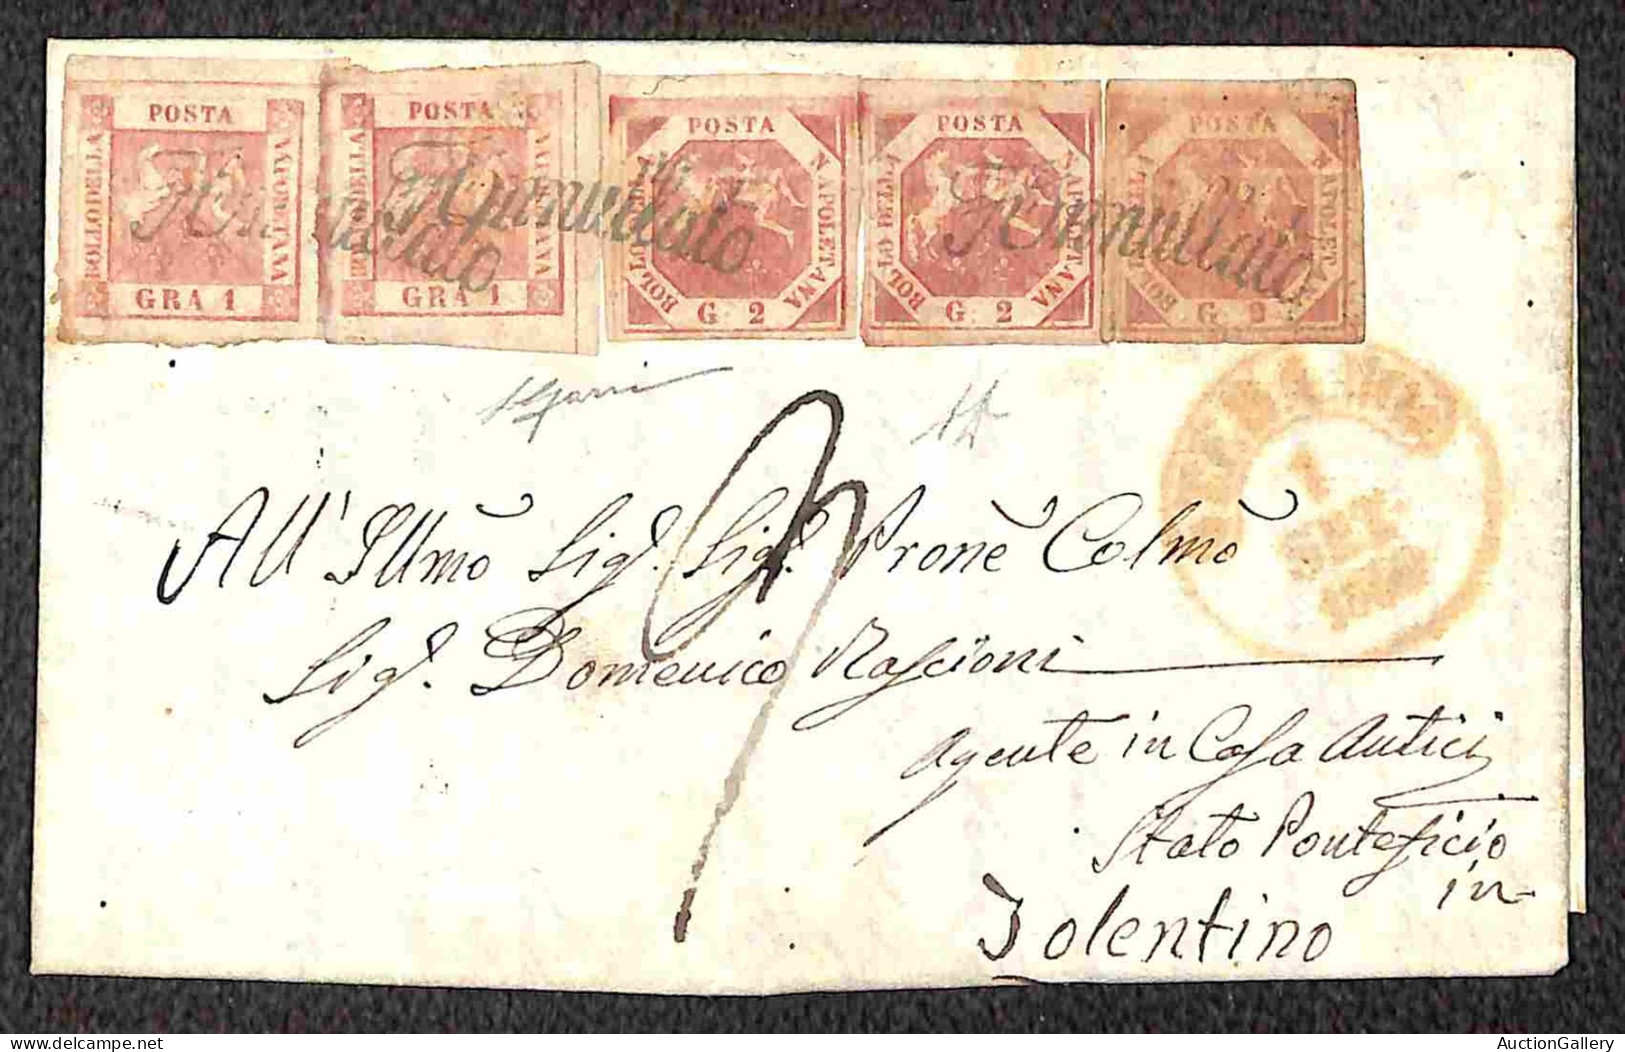 POSTA BOLLO DELLA NAPOLETANA GRA 1
POSTA BOLLO DELLA NAPOLETANA GRA 1
POSTA BOLLO DELLA NAPOLETANA G 2
POSTA BOLLO DELLA NAPOLETANA G 2
POSTA BOLLO DELLA NAPOLETANA G 2
Annullato Annullato Annullato
All' Illmõ Sig. Sig. Prone Colmõ
Sig. Domenico Rascioni
Agente in Casa Antici
Stato Ponteficio
in
Tolentino
AuctionGallery
delcampe.net